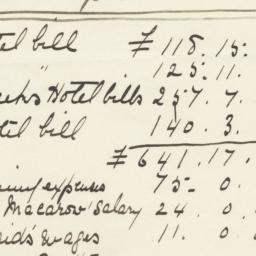 tel bill £ 118. 15.
" 125. 11.
Hotel bills 257. 7.
tel bill 140. 3.
£ 641. 17.
expenses 75- 0.
Macarow Salary 24. 0.
aid's wages 11. 0